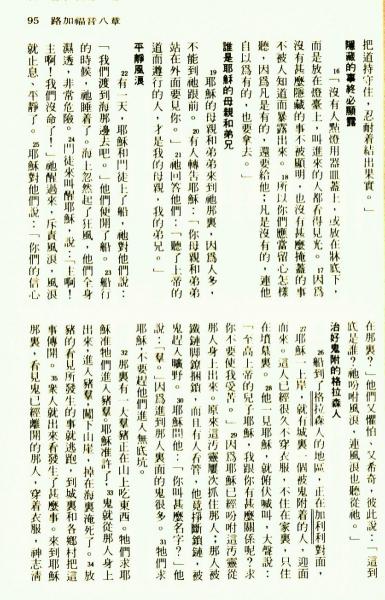 95　路加福音八章
把道持守住，忍耐着結出果實。」
隱藏的事終必顯露
16「沒有人點燈用器皿蓋上，或放在牀底下，
而是放在燈臺上，叫進來的人都看得見光。17因爲
沒有甚麼隱藏的事不被顯明，也沒有甚麼掩蓋的事
不被人知道而暴露出來。18所以你們應當留心怎樣
聽，因爲凡是有的，還要給他；凡是沒有的，連他
自以爲有的，也要拿去。」
誰是耶穌的母親和弟兄
19耶穌的母親和弟弟來到祂那裏，因爲人多，
不能到祂跟前。20有人轉告耶穌：「你母親和弟弟
站在外面要見你。」21祂回答他們：「聽了上帝的
道而遵行的人，才是我的母親，我的弟兄。」
平靜風浪
22有一天，耶穌和門徒上了船，祂對他們說：
「我們渡到海那邊去吧。」他們便開了船。23船行
的時候，祂睡着了。海上忽然起了狂風，他們全身
濕透，非常危險。24門徒來叫醒耶穌，說：「主啊！
主啊！我們沒命了！」祂醒過來，斥責風浪，風浪
就止息，平靜了。25耶穌對他們說：「你們的信心
在那裏？」他們又懼怕，又希奇，彼此說：「這到
底是誰？祂吩咐風浪，連風浪也聽從祂。」
治好鬼附的格拉森人
26船到格拉森人的地區，正在加利利對面，
27耶穌一上岸，就有城裏一個被鬼附着的人，迎面
而來。這人已經很久不穿衣服，不住在家裏，只住
在墳墓裏。28他一見耶穌，就俯伏喊叫，大聲說：
「至高上帝的兒子耶穌，我跟你有甚麼關係呢？求
你不要使我受苦。」29因爲耶穌已經吩咐這污靈從
那人身上出來。原來這污靈屢次抓住那人；那人被
鐵鏈腳鐐捆鎖，而且有人看管，他竟掙斷鎖鏈，被
鬼趕入曠野。30耶穌問他：「你叫甚麼名字？」他
說：「羣。」因爲進到那人裏面的鬼很多。31牠們求
耶穌不要趕他們進入無底坑。
32那裏有一大羣豬正在山上吃東西。牠們求耶
穌准牠們進入豬羣，耶穌准許了。33鬼就從那人身上
出來，進入豬羣，闖下山崖，掉在海裏淹死了。34放
豬的看見所發生的事就逃跑，到城裏和各鄉村把這
事傳開。35衆人就出來看發生了甚麼事。來到耶穌
那裏，看見鬼已經離開的那人，穿着衣服，神志清